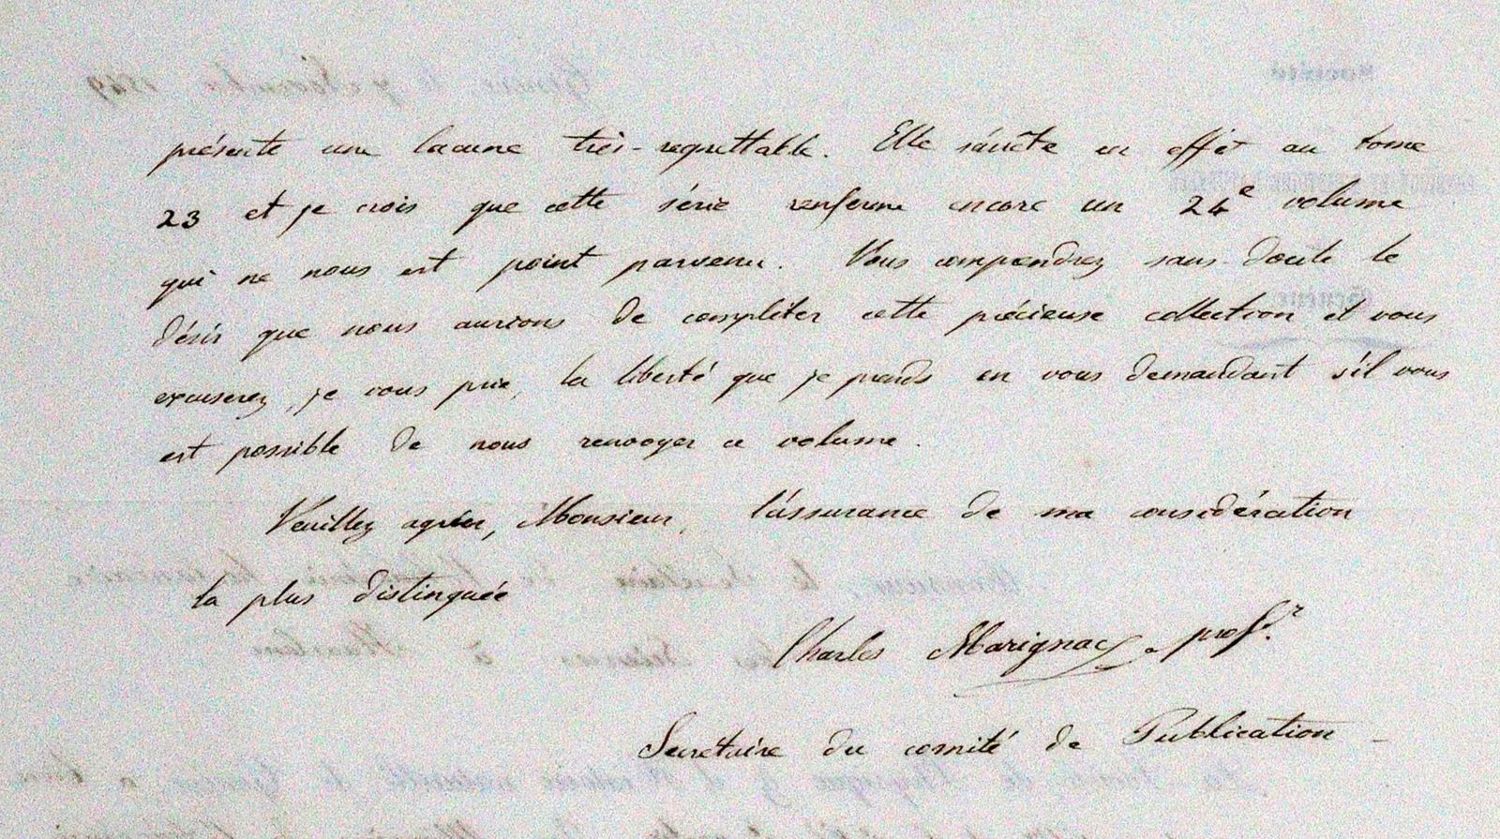 présente une lacune très-regrettable. Elle s'arrête en effet au tome
23 et je crois que cette série renferme encore un 24e volume
qui ne nous est point parvenu. Vous comprendrez sans-doute le
désir que nous aurions de compléter cette précieuse collection et vous
excuserez, je vous prie, la liberté que je prends en vous demandant s'il vous
est possible de nous renvoyer ce volume.
Veuillez agréer, Monsieur, l'assurance de ma considération
la plus distinguée
Charles Marignac, profr.
Secrétaire du comité de Publication